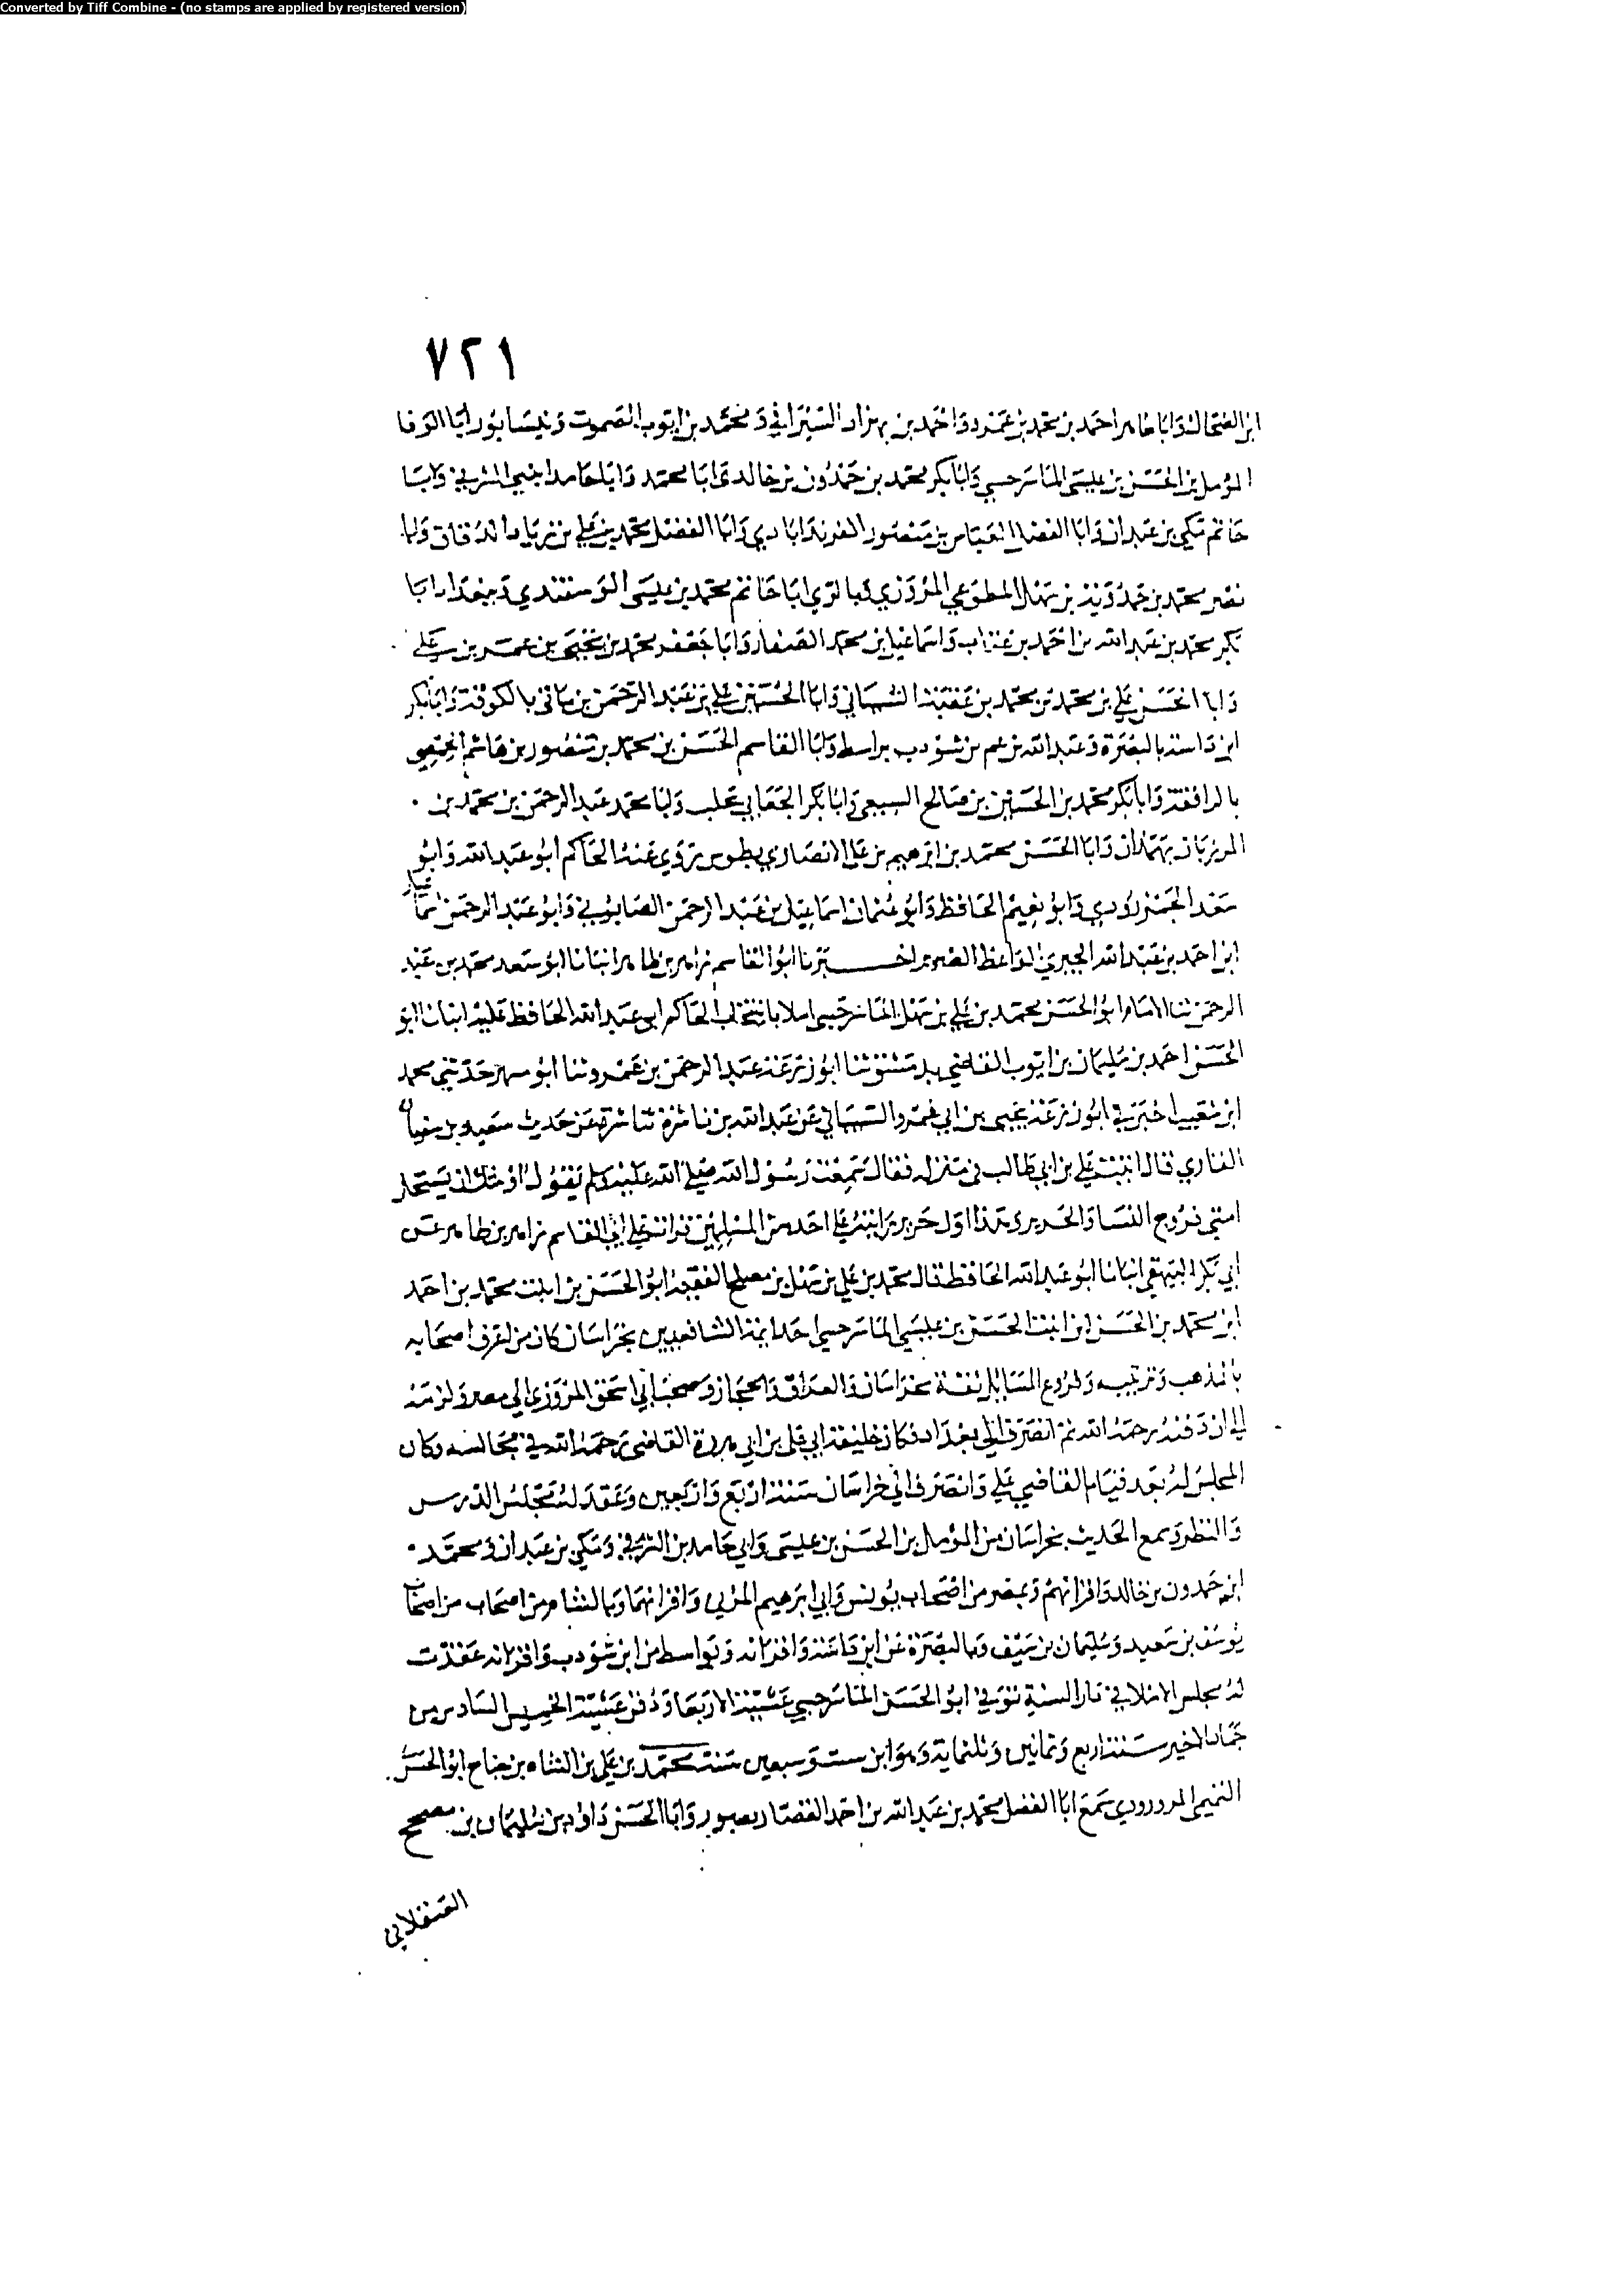 Converted by Tiff Combine - (no stamps are applied by registered version)
٧٢١
ابن الضحاك وابا طاهر احمد بن محمد بن عمرو واحمد بن بهزاد السيرافي ومحمد بن ايوب الصموت وبنيسابور ابا الوفا
المؤمل بن الحسن بن عيسى الماسرجسي وابا بكر محمد بن حمدون بن خالد وابا محمد وابا حامد ابني الشرقي وابا
حاتم مكي بن عبدان وابا الفضل العباس بن منصور الفرنداباذي وابا الفضل محمد بن علي بن زياد الدقاق وابا
نصر محمد بن حمدويه بن سهل المطوعي المروزي وبالري ابا حاتم محمد بن عيسى الوسقندي وببغداد ابا
بكر محمد بن عبد الله بن احمد بن عتاب واسماعيل بن محمد الصفار وابا جعفر محمد بن يحيى بن عمر بن علي
وابا الحسن علي بن محمد بن محمد بن عقبة الشيباني وابا الحسين علي بن عبد الرحمن بن ماتي بالكوفة وابا بكر
ابن داسة بالبصرة وعبد الله بن عمر بن شوذب بواسط وابا القاسم الحسن بن محمد بن منصور بن هاشم
بالرافقة وابا بكر محمد بن الحسين بن صالح السبيعي وابا بكر الجعابي بحلب وابا محمد عبد الرحمن بن محمد بن
المرزبان بهمذان وابا الحسن محمد بن ابرهيم بن علي الانصاري بطوس روى عنه الحاكم ابو عبد الله وابو
سعد الجنزرودي وابو نعيم الحافظ وابو عثمان اسماعيل بن عبد الرحمن الصابوني وابو عبد الرحمن اسماعيل
ابن احمد بن عبد الله الحيري الواعظ الضرير اخبرنا ابو القاسم زاهر بن طاهر انبانا ابو سعد محمد بن عبد
الرحمن ثنا الامام ابو الحسن محمد بن علي بن سهل الماسرجسي املا بانتخاب الحاكم ابي عبد الله الحافظ عليه انبانا ابو
الحسن احمد بن سليمان بن ايوب القاضي بدمشق ثنا ابو زرعة عبد الرحمن بن عمرو ثنا ابو مسهر حدثني محمد
ابن شعيب اخبرني ابو زرعة يحيى بن ابي عمرو الشيباني عن عبد الله بن ناشزة عن حديث سعيد بن سفيان
القاري قال اتيت علي بن ابي طالب في منزله فقال سمعت رسول الله صلى الله عليه وسلم يقول اوشك ان يستحل
امتي فروج النسا والحرير وهذا اول حرير رايته على احد من المسلمين قرات على ابي القاسم زاهر بن طاهر عن
ابي بكر البيهقي انبانا ابو عبد الله الحافظ قال محمد بن علي بن سهل بن مصلح الفقيه ابو الحسن بن ابنت محمد بن احمد
ابن محمد بن الحسن ابن ابنت الحسن بن عيسى الماسرجسي احد ايمة الشافعيين بخراسان كان من اعرف اصحابه
بالمذهب وترتيبه وفروع المسايل تفقه بخراسان والعراق والحجاز وصحب ابي اسحق المروزي الى مصر ولزمه
الى ان دفنه رحمه الله ثم انصرف الى بغداد فكان خليفة ابي علي بن ابي هريرة القاضي رحمه الله في مجالسه وكان
المجلس له بعد قيام القاضي علي وانصرف الى خراسان سنة اربع واربعين وعقد له مجلس الدرس
والنظر وسمع الحديث بخراسان من المؤمل بن الحسن بن عيسى وابي حامد بن الشرقي ومكي بن عبدان ومحمد
ابن حمدون بن خالد واقرانهم وبمصر من اصحاب يونس وابي ابرهيم المزني واقرانهما وبالشام من اصحاب
يوسف بن سعيد وسليمان بن سيف وبالبصرة عن ابن داسة واقرانه وبواسط من ابن شوذب واقرانه عقدت
له مجلس الاملا في دار السنة توفي ابو الحسن الماسرجسي عشية الاربعا ودفن عشية الخميس السادس من
جمادى الاخير سنة اربع وثمانين وثلثماية وهو ابن ست وسبعين سنة محمد بن علي بن الشاه بن جناح ابو الحسن
التميمي المروروذي سمع ابا الفضل محمد بن عبد الله بن احمد القصار بصور وابا الحسن داود بن سليمان بن مصحح
العسقلاني